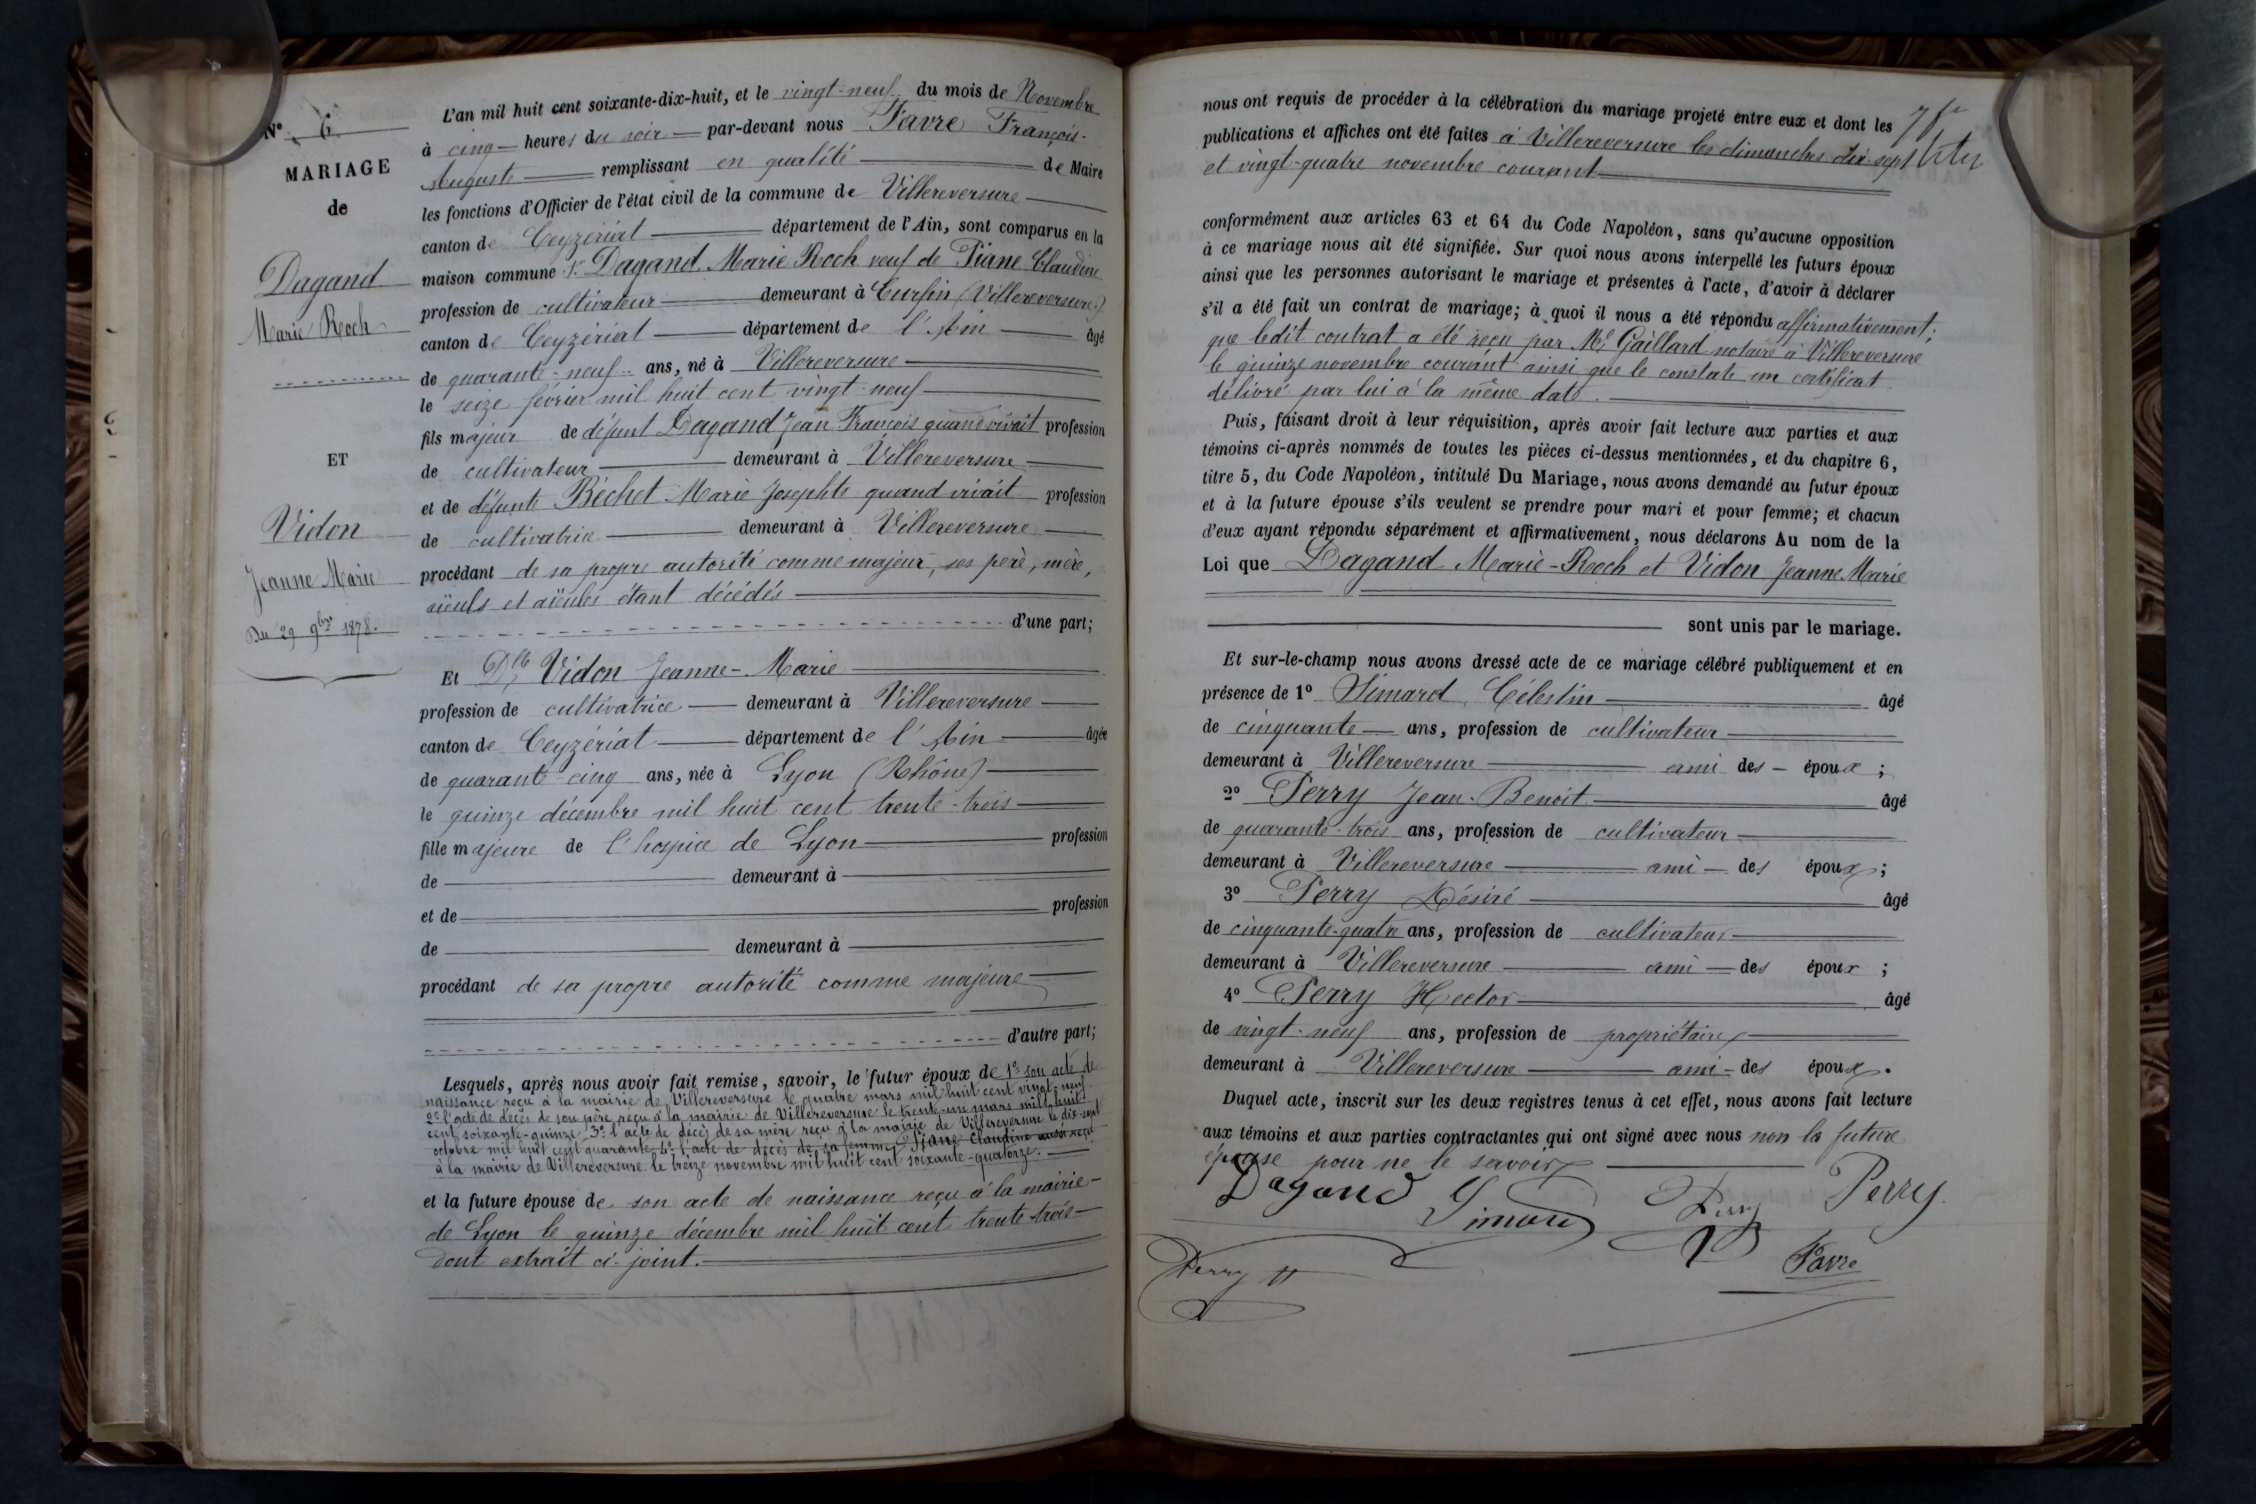 N° 6
MARIAGE
de
Dagand
Marie Roch
ET
Vidon
Jeanne Marie
Du 29 9bre 1878.
L'an mil huit cent soixante-dix-huit, et le vingt-neuf du mois de Novembre
à cinq heures du soir par-devant nous Favre François-
Auguste remplissant en qualité de Maire
les fonctions d'Officier de l'état civil de la commune de Villereversure
canton de Ceyzériat département de l'Ain, sont comparus en la
maison commune Sr Dagand Marie Roch veuf de Piane Claudine
profession de cultivateur demeurant à Cursin (Villereversure)
canton de Ceyzériat département de l'Ain âgé
de quarante-neuf ans, né à Villereversure
le seize février mil huit cent vingt-neuf
fils majeur de défunt Dagand Jean François quand vivait profession
de cultivateur demeurant à Villereversure
et de défunte Béchet Marie Josephte quand vivait profession
de cultivatrice demeurant à Villereversure
procédant de sa propre autorité comme majeur, ses père, mère,
aïeuls et aïeules étant décédés
d'une part;
Et Dlle Vidon Jeanne-Marie
profession de cultivatrice demeurant à Villereversure
canton de Ceyzériat département de l'Ain âgée
de quarante-cinq ans, née à Lyon (Rhône)
le quinze décembre mil huit cent trente-trois
fille majeure de l'hospice de Lyon profession
de demeurant à
et de profession
de demeurant à
procédant de sa propre autorité comme majeure
d'autre part;
Lesquels, après nous avoir fait remise, savoir, le futur époux de 1° son acte de
naissance reçu à la mairie de Villereversure le quatre mars mil huit cent vingt-neuf
2° l'acte de décès de son père reçu à la mairie de Villereversure le trente-un mars mil huit
cent soixante-quinze, 3° l'acte de décès de sa mère reçu à la mairie de Villereversure le dix-sept
octobre mil huit cent quarante 4° l'acte de décès de sa femme Piane Claudine aussi reçu
à la mairie de Villereversure le treize novembre mil huit cent soixante-quatorze.
et la future épouse de son acte de naissance reçu à la mairie
de Lyon le quinze décembre mil huit cent trente-trois
dont extrait ci-joint.
nous ont requis de procéder à la célébration du mariage projeté entre eux et dont les
publications et affiches ont été faites à Villereversure les dimanches dix-sept
et vingt-quatre novembre courant
conformément aux articles 63 et 64 du Code Napoléon, sans qu'aucune opposition
à ce mariage nous ait été signifiée. Sur quoi nous avons interpellé les futurs époux
ainsi que les personnes autorisant le mariage et présentes à l'acte, d'avoir à déclarer
s'il a été fait un contrat de mariage; à quoi il nous a été répondu affirmativement;
que ledit contrat a été reçu par Me Gaillard notaire à Villereversure
le quinze novembre courant ainsi que le constate un certificat
délivré par lui à la même date.
Puis, faisant droit à leur réquisition, après avoir fait lecture aux parties et aux
témoins ci-après nommés de toutes les pièces ci-dessus mentionnées, et du chapitre 6,
titre 5, du Code Napoléon, intitulé Du Mariage, nous avons demandé au futur époux
et à la future épouse s'ils veulent se prendre pour mari et pour femme; et chacun
d'eux ayant répondu séparément et affirmativement, nous déclarons Au nom de la
Loi que Dagand Marie-Roch et Vidon Jeanne Marie
sont unis par le mariage.
Et sur-le-champ nous avons dressé acte de ce mariage célébré publiquement et en
présence de 1° Simard Célestin âgé
de cinquante ans, profession de cultivateur
demeurant à Villereversure ami des époux ;
2° Perry Jean-Benoit âgé
de quarante-trois ans, profession de cultivateur
demeurant à Villereversure ami des époux ;
3° Perry Désiré âgé
de cinquante-quatre ans, profession de cultivateur
demeurant à Villereversure ami des époux ;
4° Perry Hector âgé
de vingt-neuf ans, profession de propriétaire
demeurant à Villereversure ami des époux.
Duquel acte, inscrit sur les deux registres tenus à cet effet, nous avons fait lecture
aux témoins et aux parties contractantes qui ont signé avec nous non la future
épouse pour ne le savoir
Dagand Simard Perry Perry
Perry H Favre